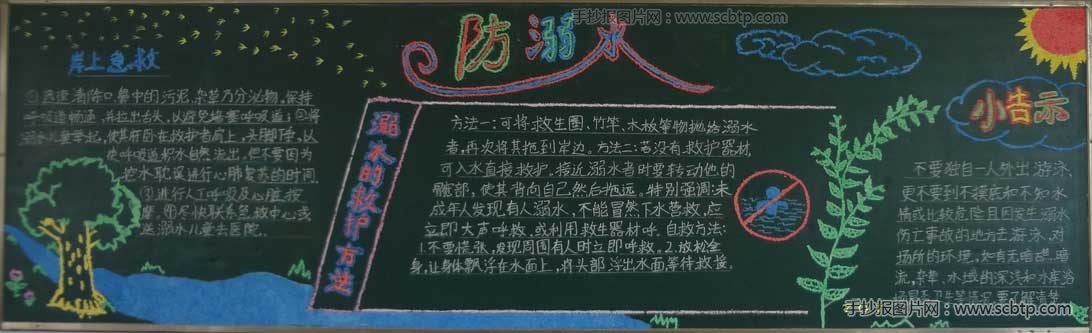 手抄报图片网：www.scbtp.com
防溺水
岸上急救
①迅速清除口鼻中的污泥、杂草及分泌物，保持
呼吸道畅通，并拉出舌头，以避免堵塞呼吸道；②将
溺水儿童举起，使其俯卧在救护者肩上，头脚下垂，以
使呼吸道积水自然流出。但不要因为
控水耽误进行心肺复苏的时间。
③进行人工呼吸及心脏按
摩。④尽快联系急救中心或
送溺水儿童去医院。
溺水的救护方法
方法一：可将救生圈、竹竿、木板等物抛给溺水
者，再次将其拖到岸边。方法二：若没有救护器材，
可入水直接救护。接近溺水者时要转动他的
髋部，使其背向自己然后拖运。特别强调：未
成年人发现有人溺水，不能冒然下水营救，应
立即大声呼救，或利用救生器材呼。自救方法：
1.不要慌张，发现周围有人时立即呼救。2.放松全
身，让身体飘浮在水面上，将头部浮出水面等待救援。
小告示
不要独自一人外出游泳，
更不要到不摸底和不知水
情或比较危险且因发生溺水
伤亡事故的地方去游泳，对
场所的环境，如有无暗礁、暗
流，杂草，水域的深浅和水库浴
场是否卫生等情况要了解清楚
手抄报图片网：www.scbtp.com